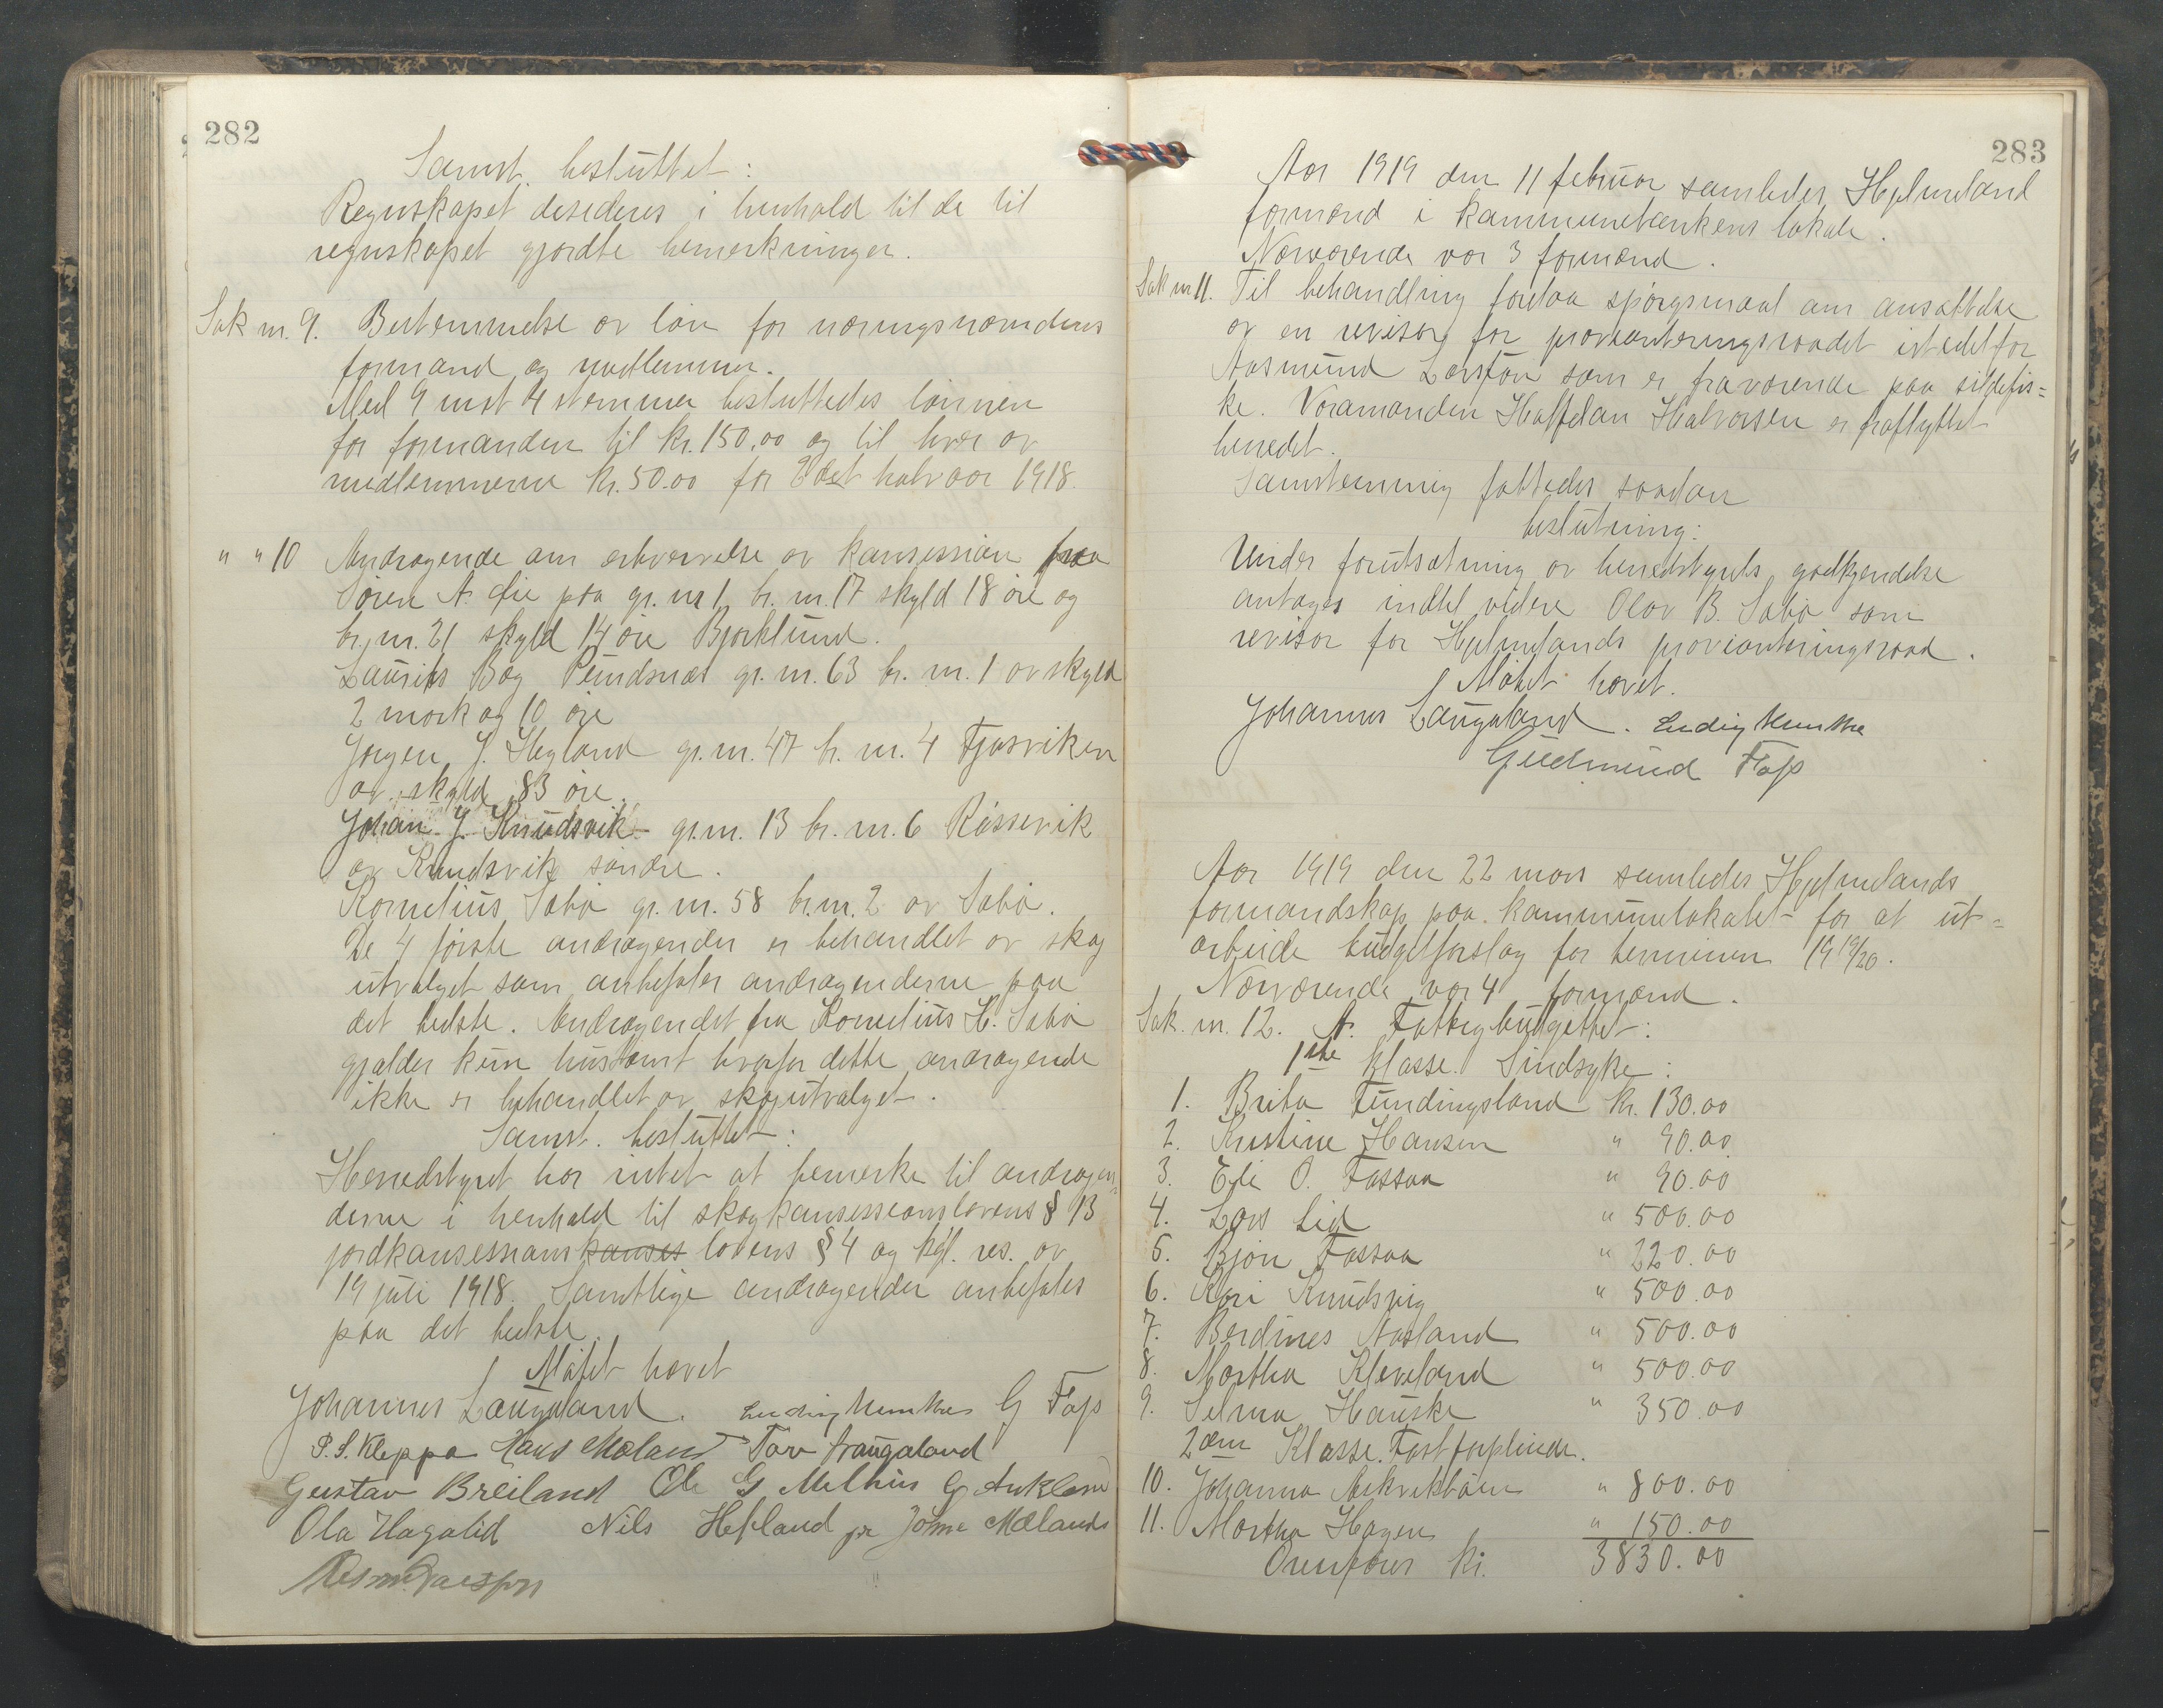 282
Samst. besluttet:
Regnskapet desideres i henhold til de til
regnskapet gjordte bemerkninger.
Sak nr. 9. Bestemmelse av løn for næringsnæmdens
formand og medlemmer.
Med 9 mot 4 stemmer besluttedes lønnen
for formanden til kr. 150,00 og til hver av
medlemmerne kr. 50.00 for 2det halvaar 1918.
" " 10 Andragende om erhvervelse av konsession fraa
Søren A. Øie paa gr. nr 1 br. nr. 17 skyld 18 øre og
br. nr. 21 skyld 14 øre Bjørklund.
Laurits Bøg Pundsnes gr. nr. 63 br. nr. 1 av skyld
2 mork og 10 øre
Jørgen J. Hegland gr. nr. 47 br. nr. 4 Fjøsviken
av skyld 83 øre.
Johan J. Knudsvik gr. nr. 13 br. nr. 6 Røssevik
av Knudsvik søndre.
Kornelius Sæbø gr. nr. 58 br. nr. 2 av Sæbø.
De 4 første andragender er behandlet av skog
utvalget som anbefaler andragenderne paa
det bedste. Andragendet fra Kornelius H. Sæbø
gjælder kun hustomt hvorfor dette andragende
ikke er behandlet av skogutvalget.
Samst. besluttet:
Herredstyret har intet at bemerke til andragen
derne i henhold til skogkonsessionslovens § 13
jordkonsessions konses lovens § 4 og kgl. res. av
19 juli 1918. Samtlige andragender anbefales
paa det bedste.
Møtet hævet
Johannes Laugaland. G Fass
P. S. Kleppa Hans Mæland Tor Haugaland
Gustav Breiland Ole G Melhus G Aukland
Ola Hagalid Nils Hetland pr Jone Mælands
283
Aar 1919 den 11 februar samledes Hjelmeland
formænd i kommunebankens lokale.
Nærværende var 3 formænd.
Sak nr 11. Til behandling foretaa spørgsmaal om ansættelse
av en revisor for provianteringsraadet istedetfor
Aasmund Larsson som er fraværende paa sildefis=
ke. Varamanden Halvorsen er fraflyttet
herredet.
Samstemmig fattedes saadan
beslutning:
Under forutsætning av herredstyrets godkjendelse
antages indtil videre Olav B. Sæbø som
revisor for Hjelmelands provianteringsraad.
Møtet hævet.
Johannes Laugaland.
Gudmund Fass
Aar 1919 den 22 mars samledes Hjelmelands
formandskap paa kommunelokalet for at ut=
arbeide budgetforslag for terminen 1919/20.
Nærværende var 4 formænd.
Sak. nr. 12. A. Fattigbudgettet:
1ste Klasse. Sindsyke:
1. Brita Fundingsland kr. 130.00
2. Kristine Hansen " 90.00
3. Eli O. Tøssaa " 90.00
4. Lars Lid " 500.00
5. Bjøn Tøssaa " 220.00
6. Kari Knudsvig " 500.00
7. Berdines Aasland " 500.00
8. Martha Kleveland " 500.00
9. Selma Hauske " 350.00
2den Klasse. Fast forpleiede.
10. Johanna " 800.00
11. Martha Hagen " 150.00
Overføres kr. 3830.00